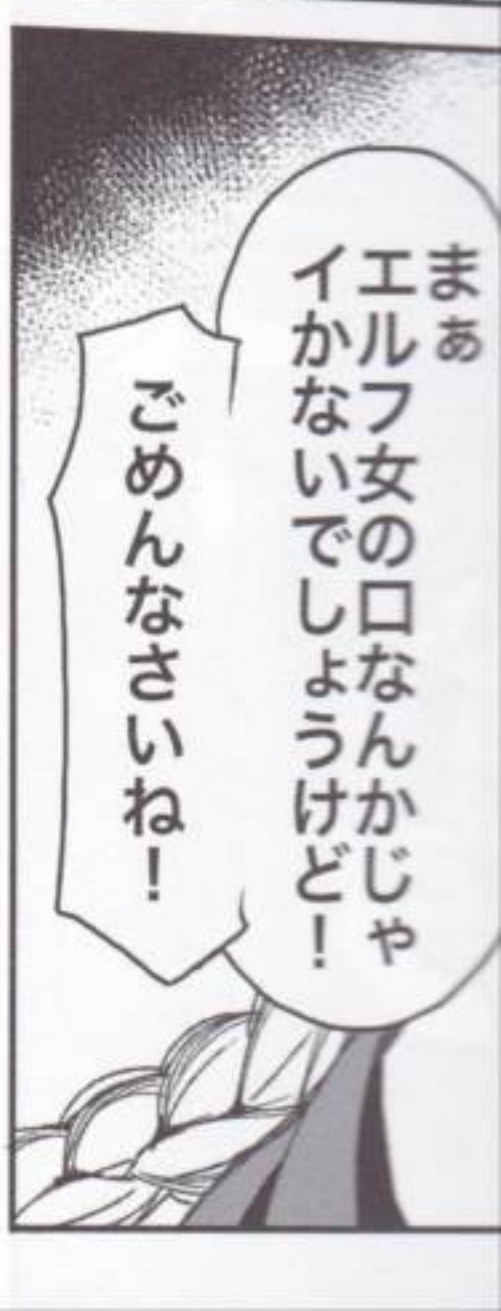 まぁ
エルフ女の口なんかじゃ
イかないでしょうけど！
ごめんなさいね！